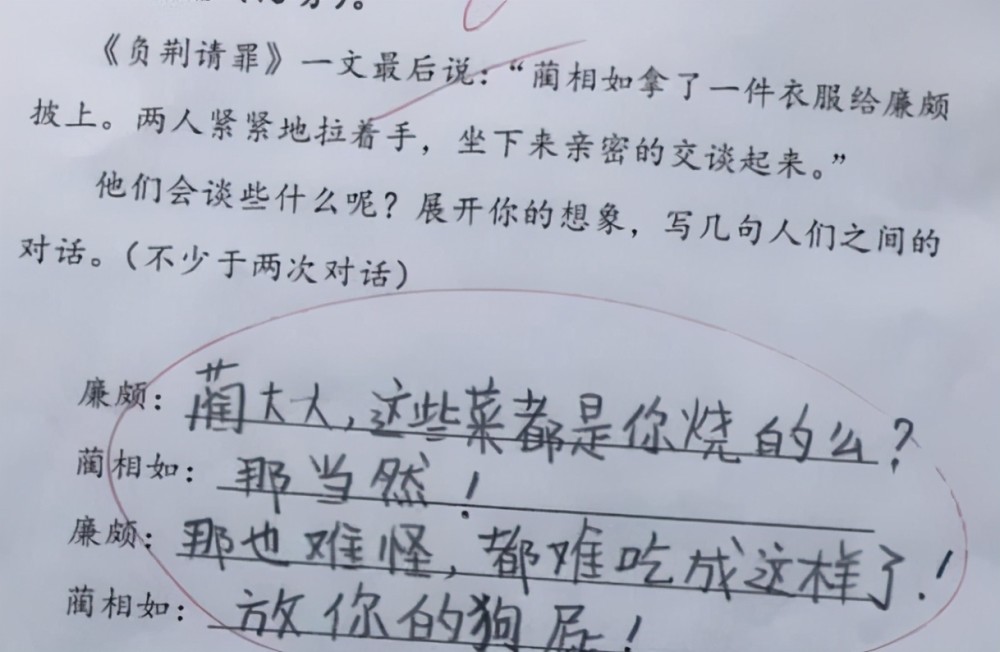 《负荆请罪》一文最后说：“蔺相如拿了一件衣服给廉颇
披上。两人紧紧地拉着手，坐下来亲密的交谈起来。”
他们会谈些什么呢？展开你的想象，写几句人们之间的
对话。（不少于两次对话）
廉颇：蔺大人，这些菜都是你烧的么？
蔺相如：那当然！
廉颇：那也难怪，都难吃成这样了！
蔺相如：放你的狗屁！